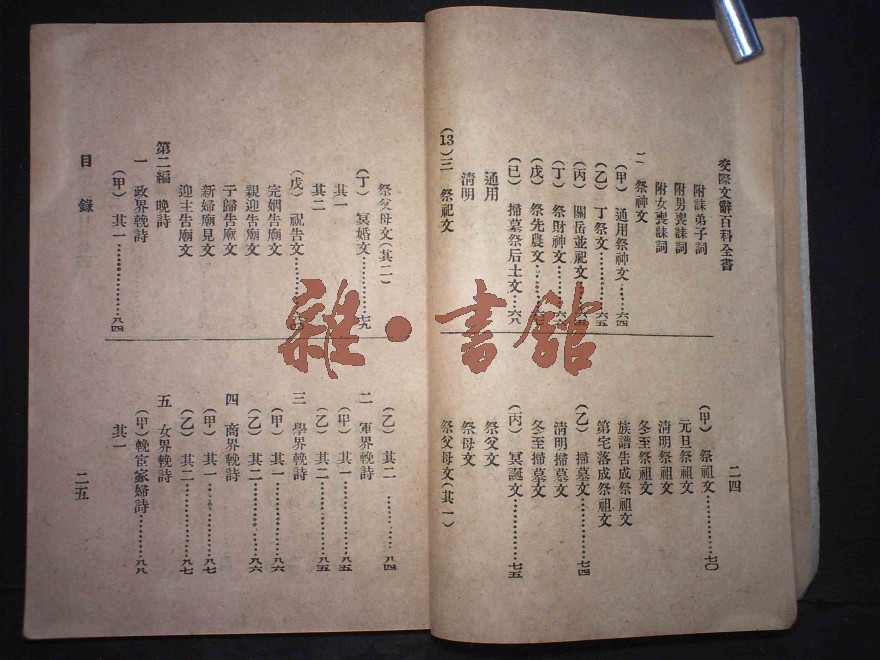 交際文辭百科全書
二四
附誄弟子詞
附男喪誄詞
附女喪誄詞
二 祭神文
(甲) 通用祭神文……六四
(乙) 丁祭文…………六五
(丙) 關岳並祀文……六五
(丁) 祭財神文………
(戊) 祭先農文………六七
(已) 掃墓祭后土文…六八
通用
清明
(13)三 祭祀文
(甲) 祭祖文…………七〇
元旦祭祖文
清明祭祖文
冬至祭祖文
族譜告成祭祖文
第宅落成祭祖文
(乙) 掃墓文…………七四
清明掃墓文
冬至掃墓文
(丙) 冥誕文…………七五
祭父文
祭母文
祭父母文(其一)
祭父母文(其二)
(丁) 冥婚文…………七九
其一
其二
(戊) 祝告文…………八〇
完姻告廟文
親迎告廟文
于歸告廟文
新婦廟見文
迎主告廟文
第二編 晚詩
一 政界輓詩
(甲) 其一……………八四
(乙) 其二……………八四
二 軍界輓詩
(甲) 其一……………八五
(乙) 其二……………八五
三 學界輓詩
(甲) 其一……………八六
(乙) 其二……………八六
四 商界輓詩
(甲) 其一……………八七
(乙) 其二……………八七
五 女界輓詩
(甲) 輓宦家婦詩……八八
其一
目錄
二五
雜·書館